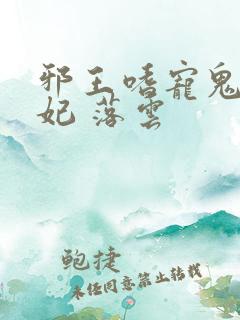 邪王嗜寵鬼
妃 落雲
鲍捷
未任同意禁止转载